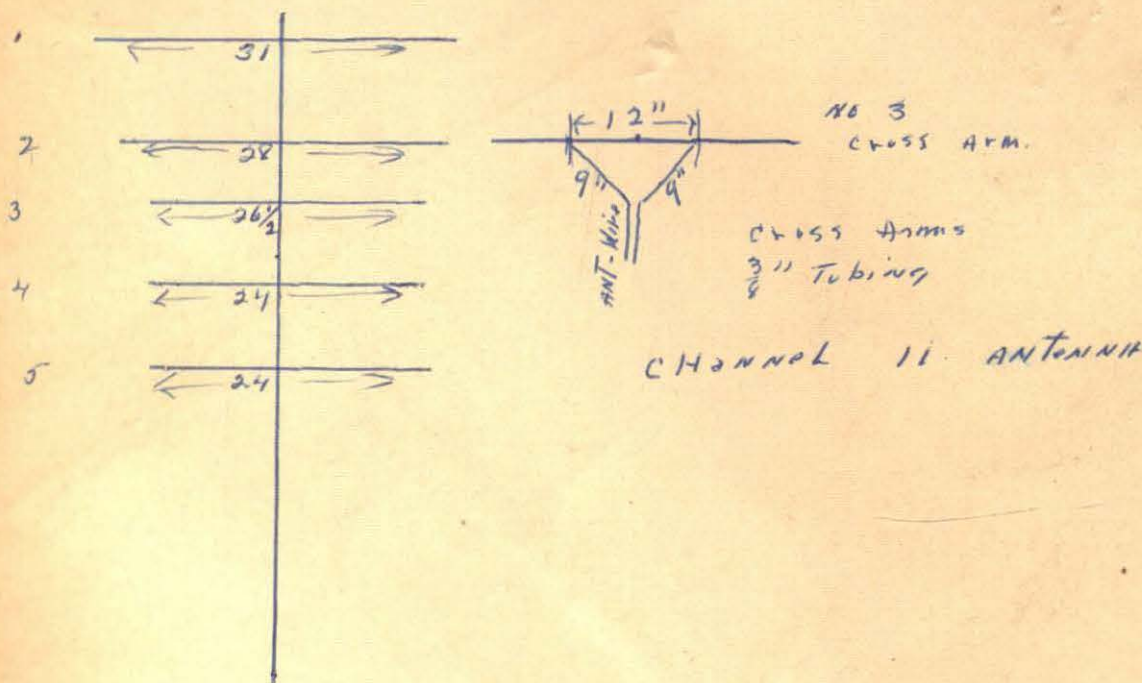 1 31
2 28
3 26 1/2
4 24
5 24
12"
9" 9"
ANT-Wire
NO 3
Cross Arm.
Cross Arms
3/8" Tubing
CHANNeL 11 ANTeNNA